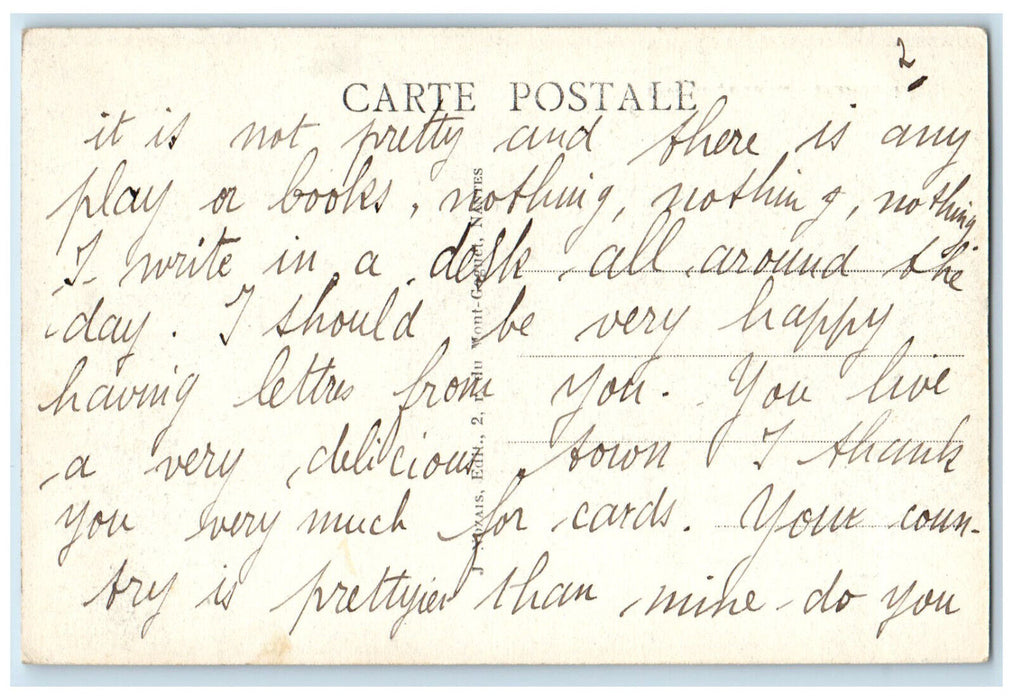 2
CARTE POSTALE
it is not pretty and there is any
play or books, nothing, nothing, nothing.
I write in a desk all around the
day. I should be very happy
having lettres from you. You live
a very delicious town I thank
you very much for cards. Your coun-
try is prettyier than mine do you
J. Nozais, Edit., 2, r. du Mont-Goguet, NANTES